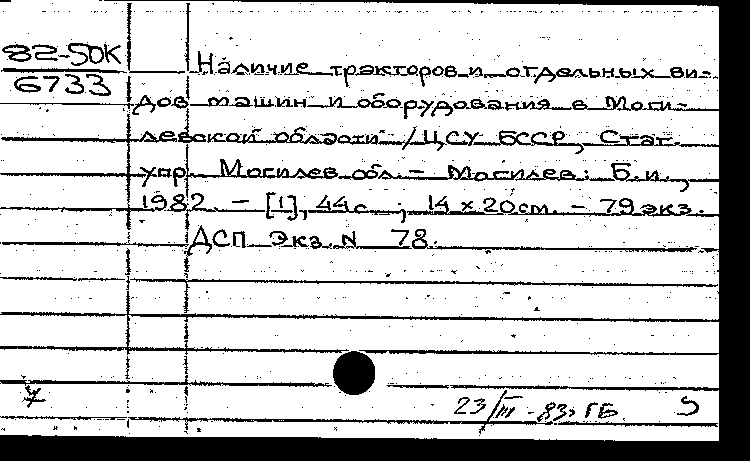 82-50К
6733
Наличие тракторов и отдельных ви-
дов машин и оборудования в Моги-
левской области / ЦСУ БССР, Стат.
упр. Могилев. обл. - Могилев: Б.и.,
1982. - [1], 44с. ; 14 x 20см. - 79 экз.
ДСП Экз. N 78.
23/III - 83. ГБ.